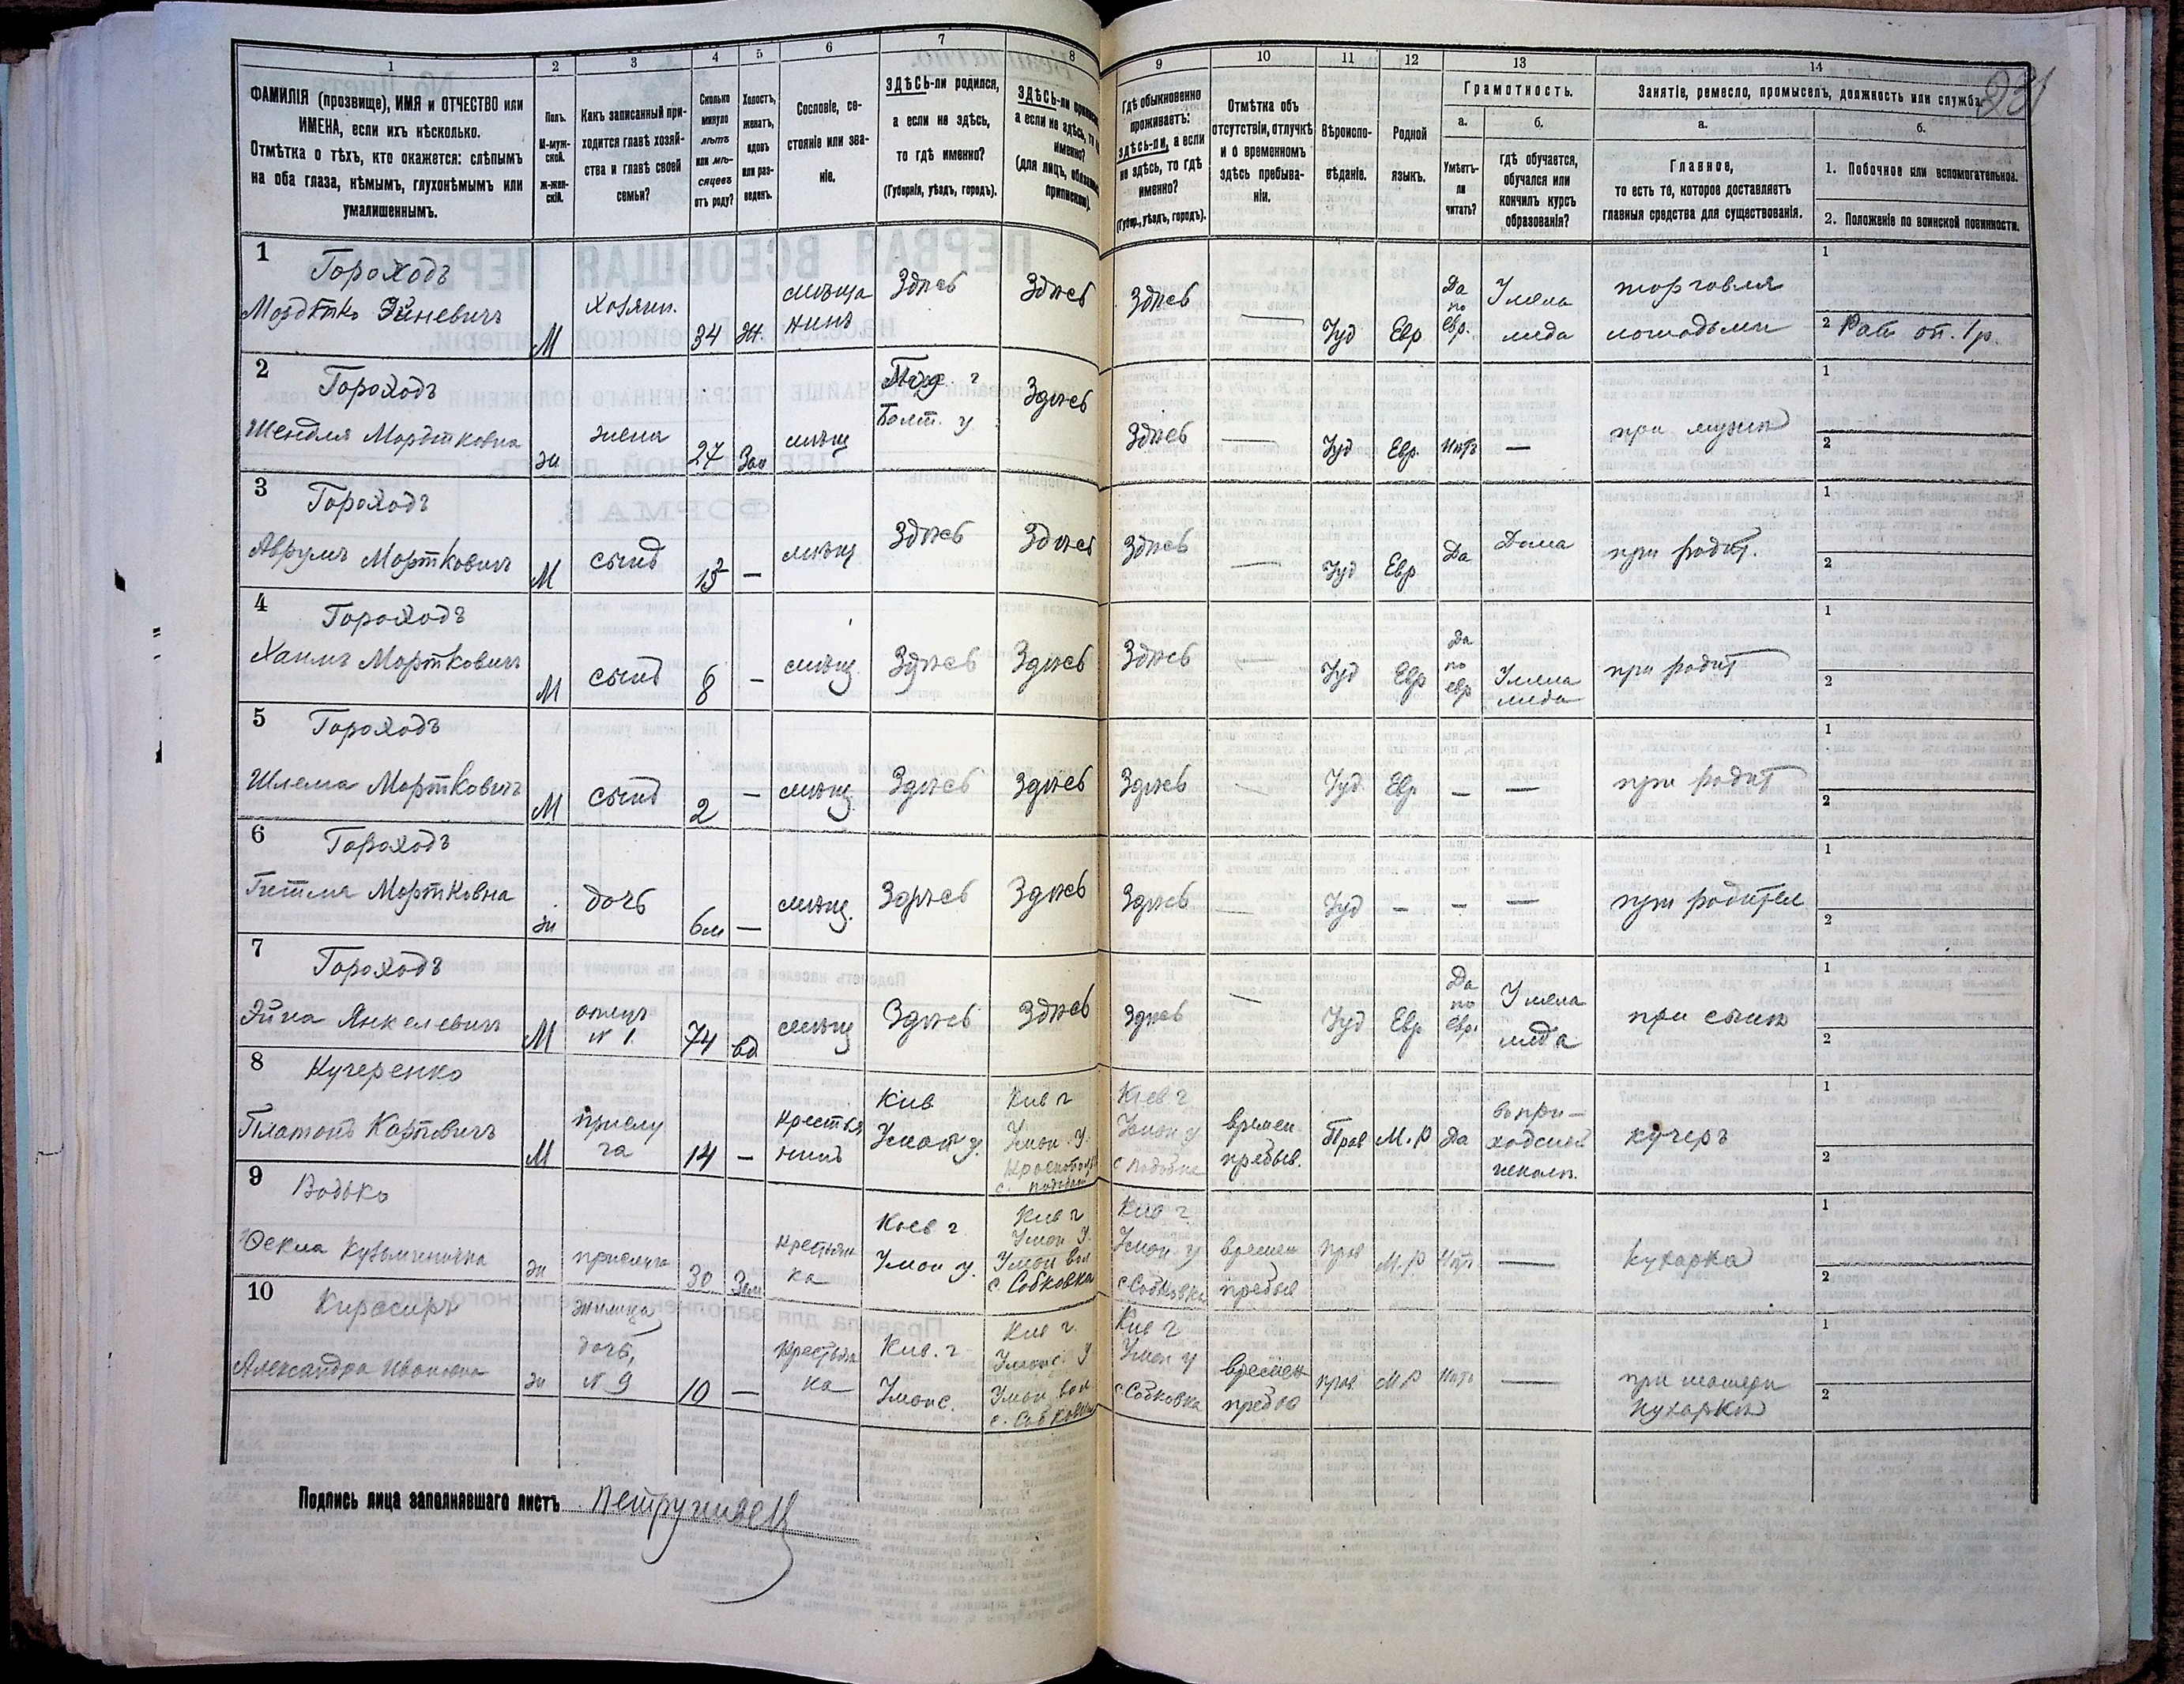 1 2 3 4 5 6 7 8 9 10 11 12 13 14
ФАМИЛІЯ (прозвище), ИМЯ и ОТЧЕСТВО или
ИМЕНА, если ихъ нѣсколько.
Отмѣтка о тѣхъ, кто окажется: слѣпымъ
на оба глаза, нѣмымъ, глухонѣмымъ или
умалишеннымъ.
Полъ.
М-муж-
ской.
Ж-жен-
скій.
Какъ записанный при-
ходится главѣ хозяй-
ства и главѣ своей
семьи?
Сколько
минуло
лѣтъ
или мѣ-
сяцевъ
отъ роду?
Холостъ,
женатъ,
вдовъ
или раз-
веденъ.
Сословіе, со-
стояніе или зва-
ніе.
ЗДѢСЬ-ли родился,
а если не здѣсь,
то гдѣ именно?
(Губернія, уѣздъ, городъ).
ЗДѢСЬ-ли
а если не здѣсь, то
именно?
(Для лицъ,
Гдѣ обыкновенно
проживаетъ:
здѣсь-ли, а если
не здѣсь, то гдѣ
именно?
(Губер., уѣздъ, городъ).
Отмѣтка объ
отсутствіи, отлучкѣ
и о временномъ
здѣсь пребыва-
ніи.
Вѣроиспо-
вѣданіе.
Родной
языкъ.
Грамотность.
а.
Умѣетъ-
ли
читать?
б.
гдѣ обучается,
обучался или
кончилъ курсъ
образованія?
Занятіе, ремесло, промыселъ, должность или служба.
а.
Главное,
то есть то, которое доставляетъ
главныя средства для существованія.
б.
1. Побочное или вспомогательное.
2. Положеніе по воинской повинности.
1 Гороходъ
Мордтко Эйневичъ М хозяин. 34 Ж. мѣща
нинъ Здѣсь Здѣсь Здѣсь — Іуд Евр Да
по
евр. У мела
меда торговля
лошадьми 1
2 Рат. оп. 1 р.
2 Гороходъ
Шендля Мордтковна ж жена 27 Зам мѣщ
Балт. у Здѣсь Здѣсь — Іуд Евр. Нѣтъ — при мужѣ 1
2
3 Гороходъ
Аврумъ Мортковичъ М сынъ — мѣщ Здѣсь Здѣсь Здѣсь — Іуд Евр Да Дома при родит. 1
2
4 Гороходъ
Хаимъ Мортковичъ М сынъ 8 — мѣщ Здѣсь Здѣсь Здѣсь — Іуд Евр Да
по
евр У мела
меда при родит 1
2
5 Гороходъ
Шлема Мортковичъ М сынъ 2 — мѣщ. Здѣсь Здѣсь Здѣсь — Іуд Евр — — при родит 1
2
6 Гороходъ
Гитля Мортковна ж дочь 6м — мѣщ. Здѣсь Здѣсь Здѣсь — Іуд — — — при родител 1
2
7 Гороходъ
Эйна Янкелевичъ М отецъ
N 1. 74 вд мѣщ Здѣсь Здѣсь Здѣсь — Іуд Евр Да
по
евр. У мела
меда при сынѣ 1
2
8 Кучеренко
Платонъ Карповичъ М прислу
га 14 — крестья
нинъ Кив
Уман у. Кив г
Уман. у.
Киев г
Уман у
времен.
пребыв. Прав М.Р Да въ при-
ходской
школѣ. кучеръ 1
2
9 Водько
Фекла Кузьминична ж прислуга 30 Зам крестьян
ка Киев г
Уман у. Кив г
Уман у
Уман вол
с. Собковка Кив г
Уман у
с. Собковка времен
пребыв Прав М.Р Нѣт — кухарка 1
2
10 Кирасиръ
Александра Ивановна ж жилица
дочь,
N 9 10 — крестьян
ка Кив. г
Уманс. Кив г.
Уманс. у
Уман вол
с. Собковка Кив г
Уман у
с. Собковка времен
пребыв прав. М Р Нѣтъ — при матери
кухарки 1
2
Подпись лица заполнявшаго листъ